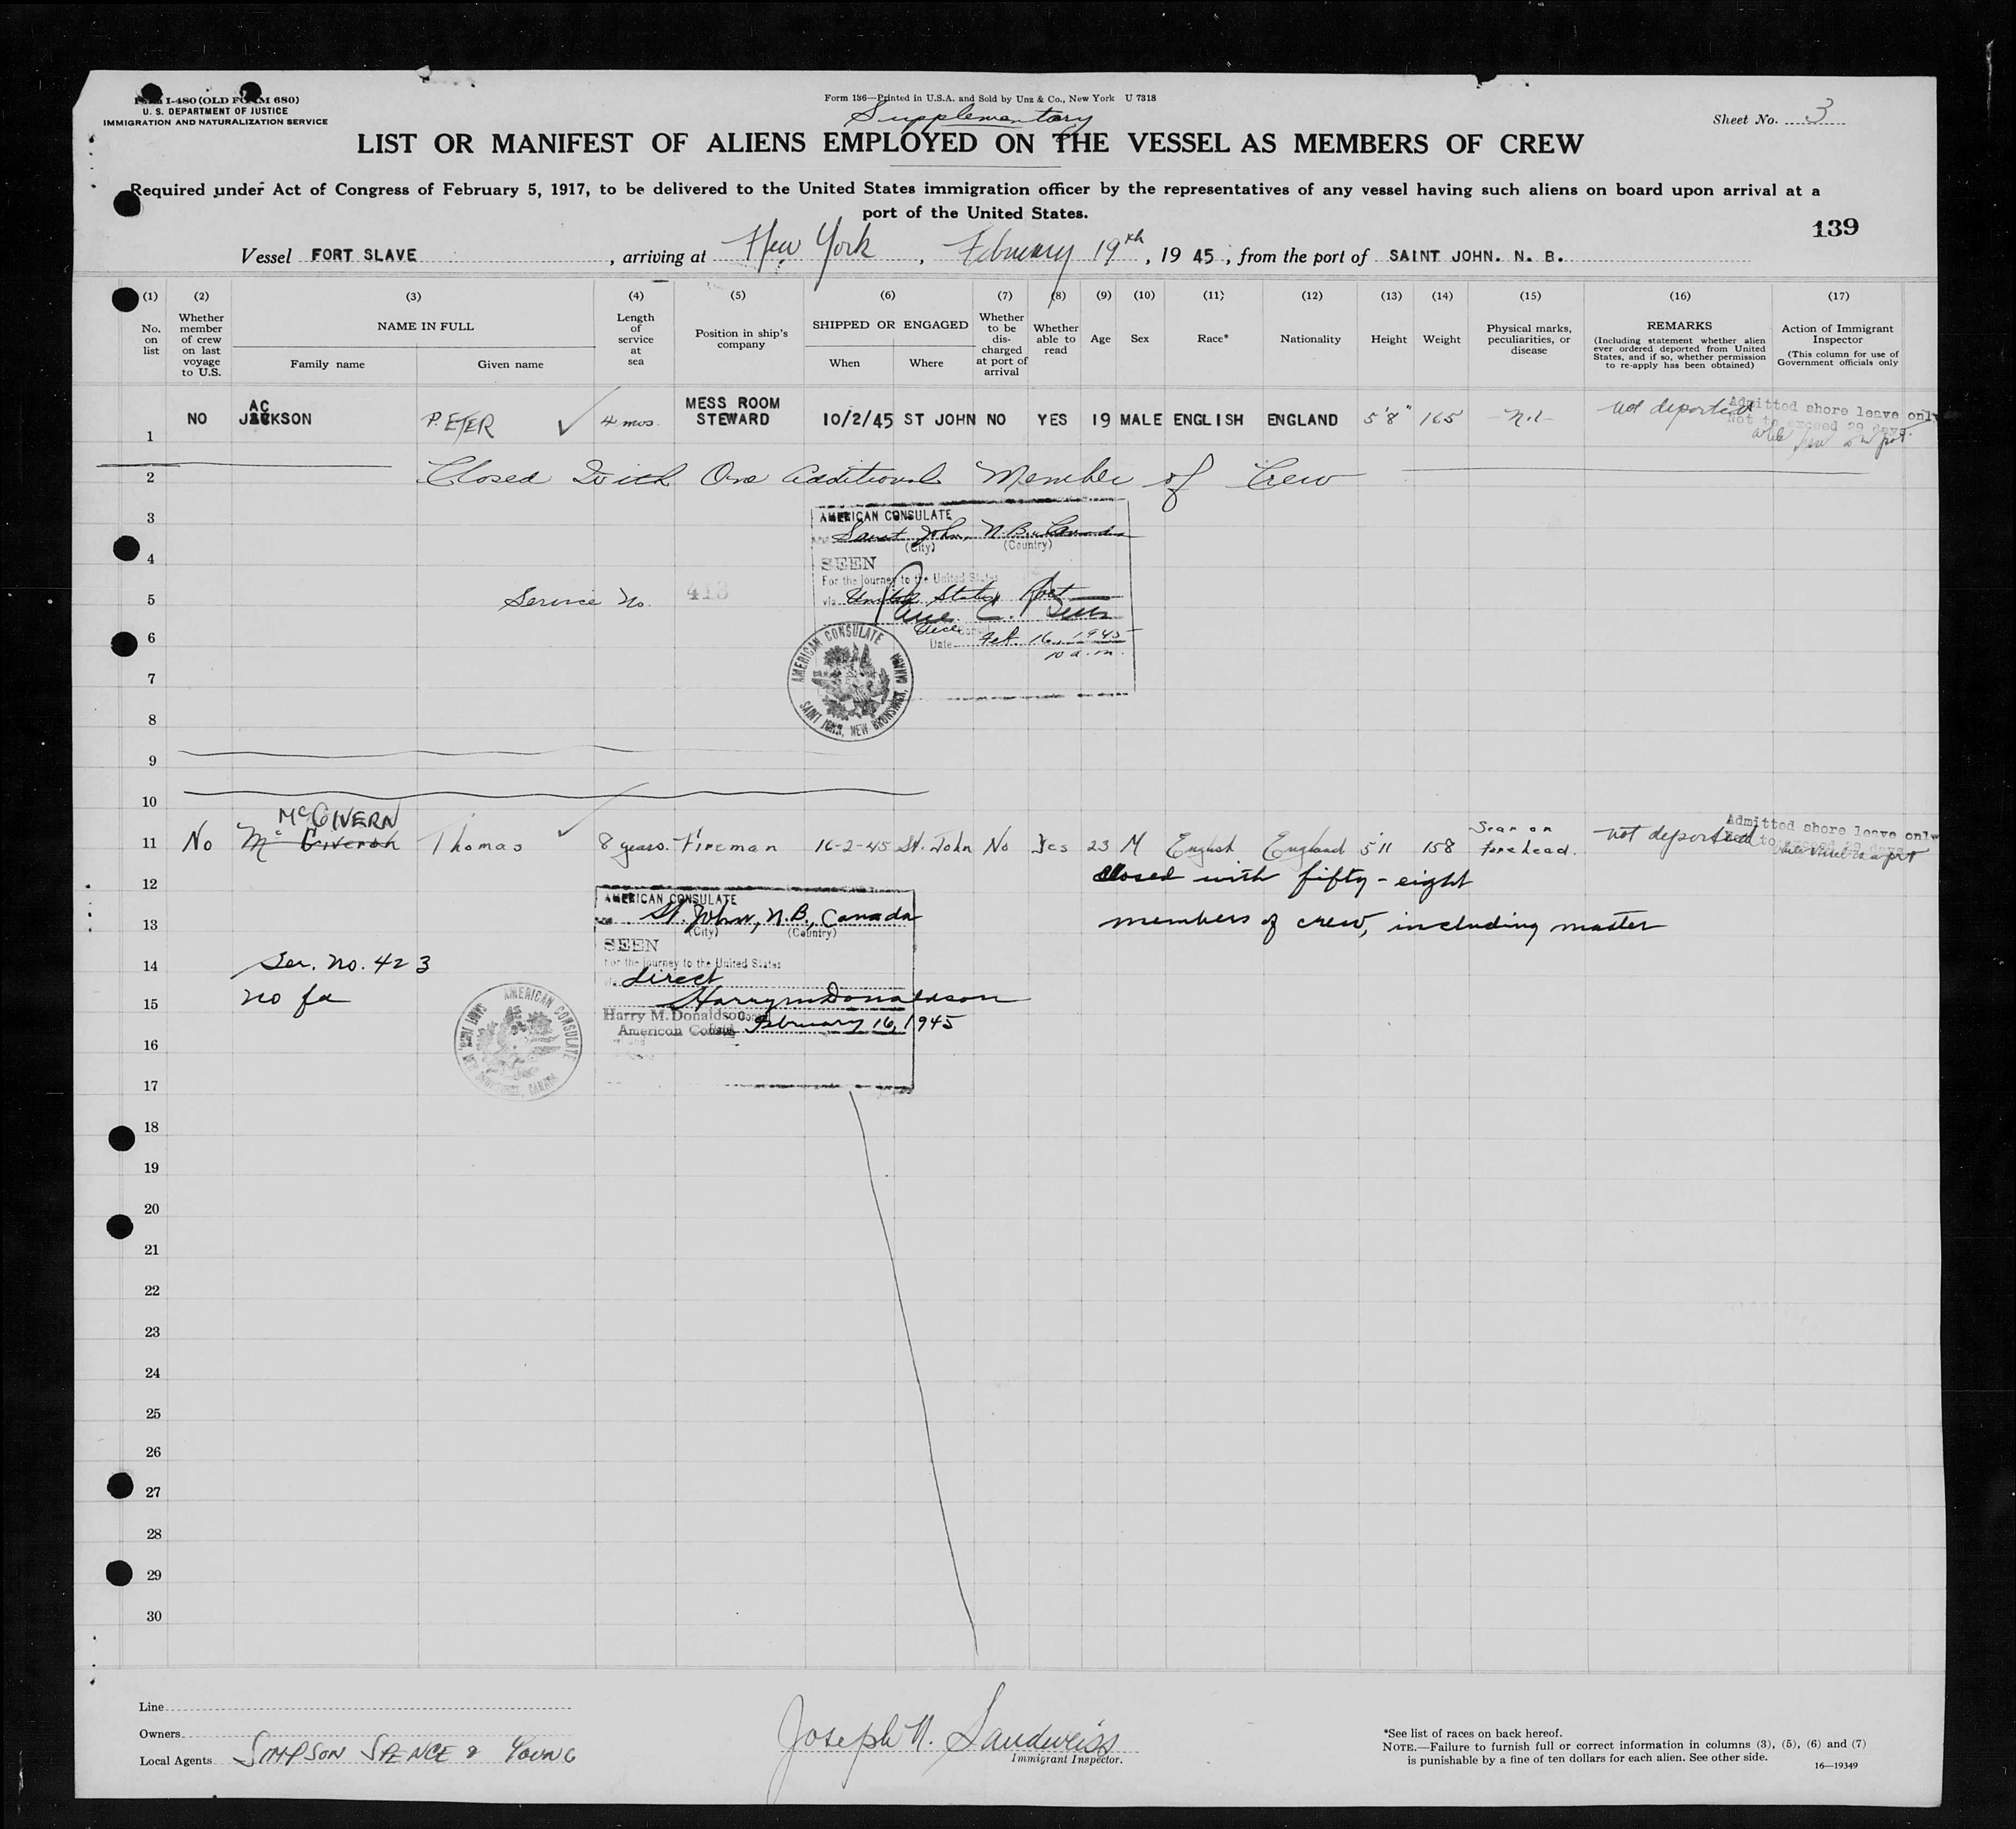 Form I-480 (OLD FORM 680)
U. S. DEPARTMENT OF JUSTICE
IMMIGRATION AND NATURALIZATION SERVICE
Form 136—Printed in U.S.A. and Sold by Unz & Co., New York U 7318
Supplementary
Sheet No. 3
LIST OR MANIFEST OF ALIENS EMPLOYED ON THE VESSEL AS MEMBERS OF CREW
Required under Act of Congress of February 5, 1917, to be delivered to the United States immigration officer by the representatives of any vessel having such aliens on board upon arrival at a
port of the United States.
139
Vessel FORT SLAVE, arriving at New York, February 19th, 1945, from the port of SAINT JOHN. N. B.
(1) No. on list
(2) Whether member of crew on last voyage to U.S.
(3) NAME IN FULL Family name Given name
(4) Length of service at sea
(5) Position in ship's company
(6) SHIPPED OR ENGAGED When Where
(7) Whether to be discharged at port of arrival
(8) Whether able to read
(9) Age
(10) Sex
(11) Race*
(12) Nationality
(13) Height
(14) Weight
(15) Physical marks, peculiarities, or disease
(16) REMARKS (Including statement whether alien ever ordered deported from United States, and if so, whether permission to re-apply has been obtained)
(17) Action of Immigrant Inspector (This column for use of Government officials only
AC
1 NO JACKSON PETER 4 mos. MESS ROOM STEWARD 10/2/45 ST JOHN NO YES 19 MALE ENGLISH ENGLAND 5'8" 165 - Nil - not deported
Admitted shore leave only
Not to exceed 29 days.
2 Closed With One Additional Member of Crew
3
AMERICAN CONSULATE
Saint John, N.B. Canada
(City) (Country)
4
SEEN
For the journey to the United States
5 Service No. 413
via United States Port
6
Vice Consul
Date Feb. 16, 1945
10 a.m.
AMERICAN CONSULATE
SAINT JOHN, NEW BRUNSWICK, CANADA
7
8
9
10
McGIVERN
11 No McGivern Thomas 8 years. Fireman 16-2-45 St. John No Yes 23 M English England 5'11 158 Scar on forehead. not deported
Admitted shore leave only
12 closed with fifty-eight
AMERICAN CONSULATE
St. John, N.B., Canada
(City) (Country)
13 members of crew, including master
SEEN
For the journey to the United States
14 Ser. No. 423
via direct
15 no fee
Harry M Donaldson
Harry M. Donaldson
American Consul
February 16, 1945
AMERICAN CONSULATE
SAINT JOHN, NEW BRUNSWICK, CANADA
16
17
18
19
20
21
22
23
24
25
26
27
28
29
30
Line
Owners
Local Agents SIMPSON SPENCE & YOUNG
Joseph N. Sandweiss
Immigrant Inspector.
*See list of races on back hereof.
NOTE.—Failure to furnish full or correct information in columns (3), (5), (6) and (7)
is punishable by a fine of ten dollars for each alien. See other side.
16—19349